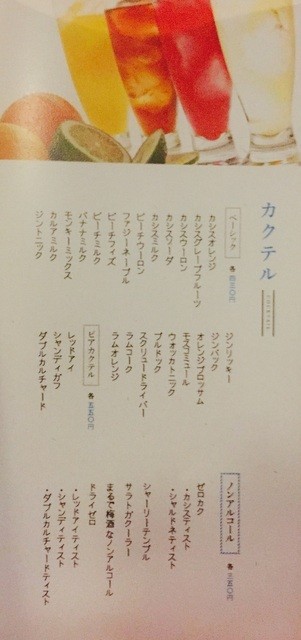 カクテル
COCKTAIL
ベーシック
各 四三〇円
カシスオレンジ
カシスグレープフルーツ
カシスウーロン
カシスソーダ
カシスミルク
ピーチウーロン
ファジーネーブル
ピーチフィズ
ピーチミルク
バナナミルク
モンキーミックス
カルアミルク
ジントニック
ジンリッキー
ジンバック
オレンジブロッサム
モスコミュール
ウォッカトニック
ブルドック
スクリュードライバー
ラムコーク
ラムオレンジ
ビアカクテル
各 五五〇円
レッドアイ
シャンディガフ
ダブルカルチャード
ノンアルコール
各 三五〇円
ゼロカク
・カシステイスト
・シャルドネテイスト
シャーリーテンプル
サラトガクーラー
まるで梅酒なノンアルコール
ドライゼロ
・レッドアイテイスト
・シャンディテイスト
・ダブルカルチャードテイスト